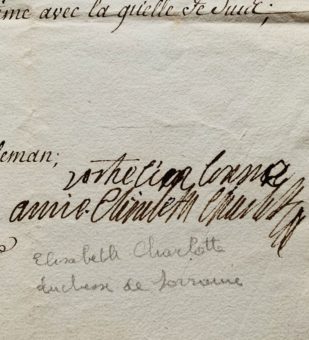 avec la quelle Je Suis;
bonne
amie. Elisabeth Charlotte
Elisabeth Charlotte
duchesse de Lorraine